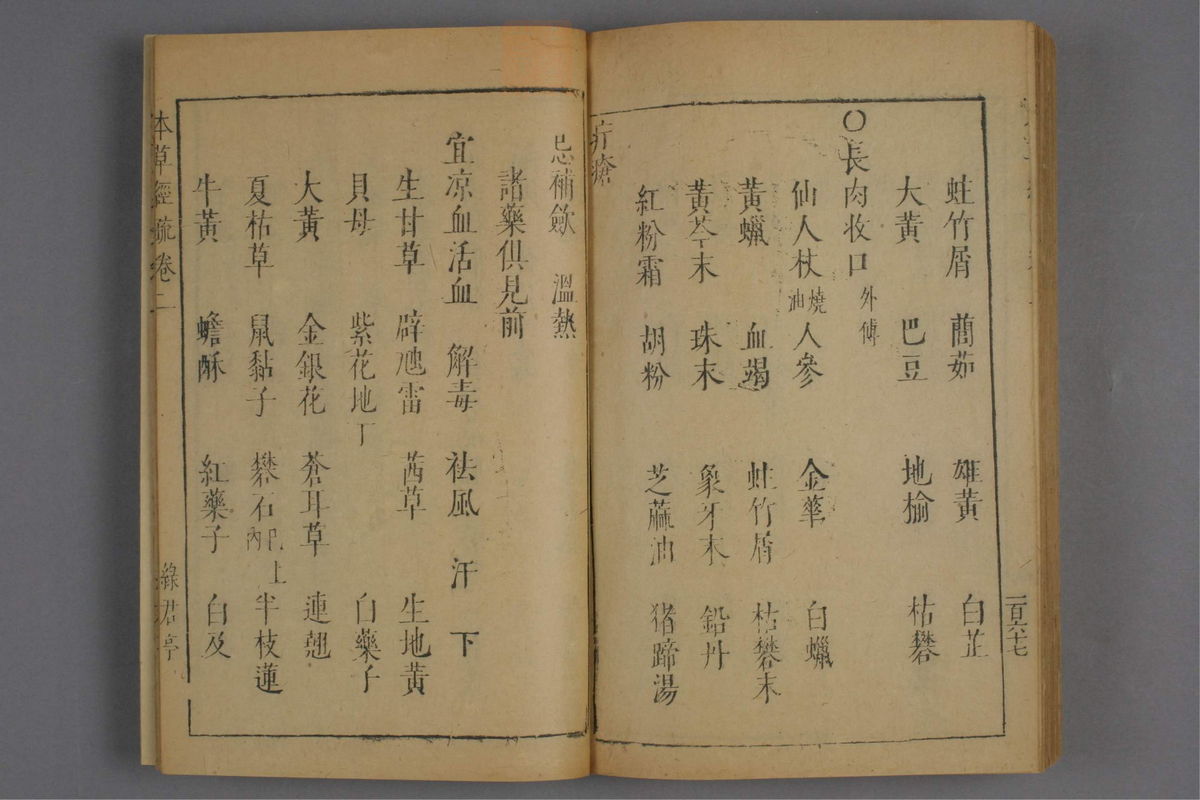 蛀竹屑 藺茹 雄黃 白芷
大黃 巴豆 地榆 枯礬
〇長肉收口 外傅
仙人杖 燒油 人參 金華 白蠟
黃蠟 血竭 蛀竹屑 枯礬末
黃芩末 珠末 象牙末 鉛丹
紅粉霜 胡粉 芝蔴油 猪蹄湯
疔瘡
忌補斂 溫熱
諸藥俱見前
宜凉血活血 解毒 祛風 汗 下
生甘草 辟虺雷 茜草 生地黃
貝母 紫花地丁 白藥子
大黃 金銀花 蒼耳草 連翹
夏枯草 鼠黏子 礬石 內 上 半枝蓮
牛黃 蟾酥 紅藥子 白及
本草經疏卷二 綠君亭
一百六十七